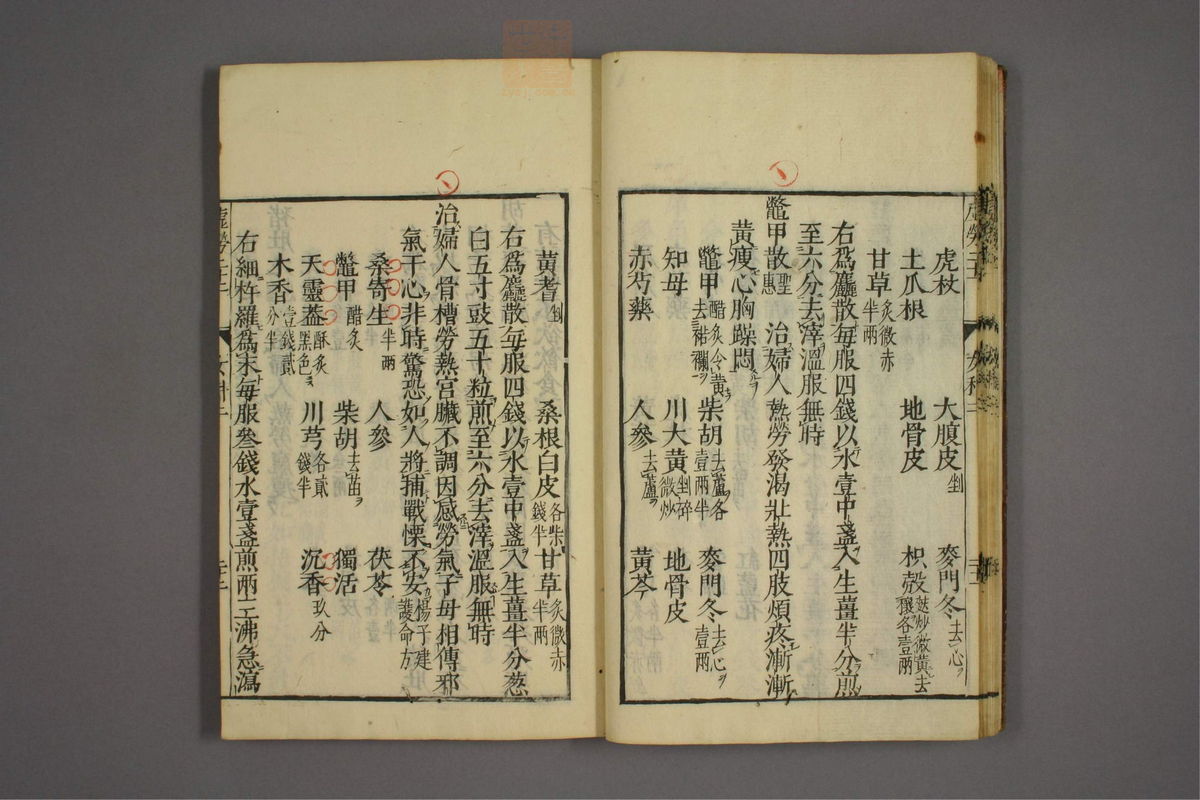 虎杖 大腹皮剉 麥門冬去心
土瓜根 地骨皮 枳殼麩炒微黃去穰各壹兩
甘草炙微赤半兩
右爲麤散每服四錢以水壹中盞入生薑半分煎
至六分去滓溫服無時
鼈甲散聖惠 治婦人熱勞發渴壯熱四肢煩疼漸漸
黃瘦心胸躁悶
鼈甲醋炙令黃去裙襴 柴胡去蘆各壹兩半 麥門冬去心壹兩
知母 川大黃剉碎微炒 地骨皮
赤芍藥 人參去蘆 黃芩
黃耆剉 桑根白皮各柒錢半 甘草炙微赤半兩
右爲麤散每服四錢以水壹中盞入生薑半分葱
白五寸豉五十粒煎至六分去滓溫服無時
治婦人骨槽勞熱宮臟不調因感勞氣子母相傳邪
氣干心非時驚恐如人將捕戰慄不安楊子建護命方
桑寄生半兩 人參 茯苓
鼈甲醋炙 柴胡去苗 獨活
天靈蓋酥炙黑色壹錢貳分半 川芎各貳錢半 沉香玖分
木香
右細杵羅爲末每服參錢水壹盞煎兩二沸急瀉